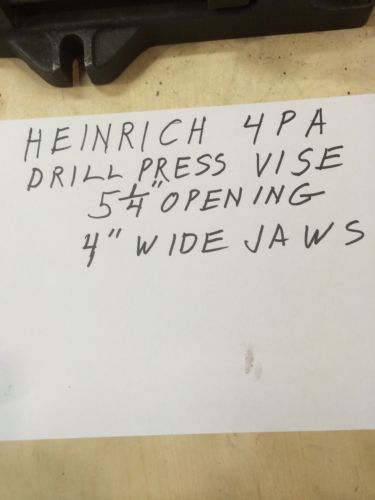 HEINRICH 4PA
DRILL PRESS VISE
5 1/4" OPENING
4" WIDE JAWS